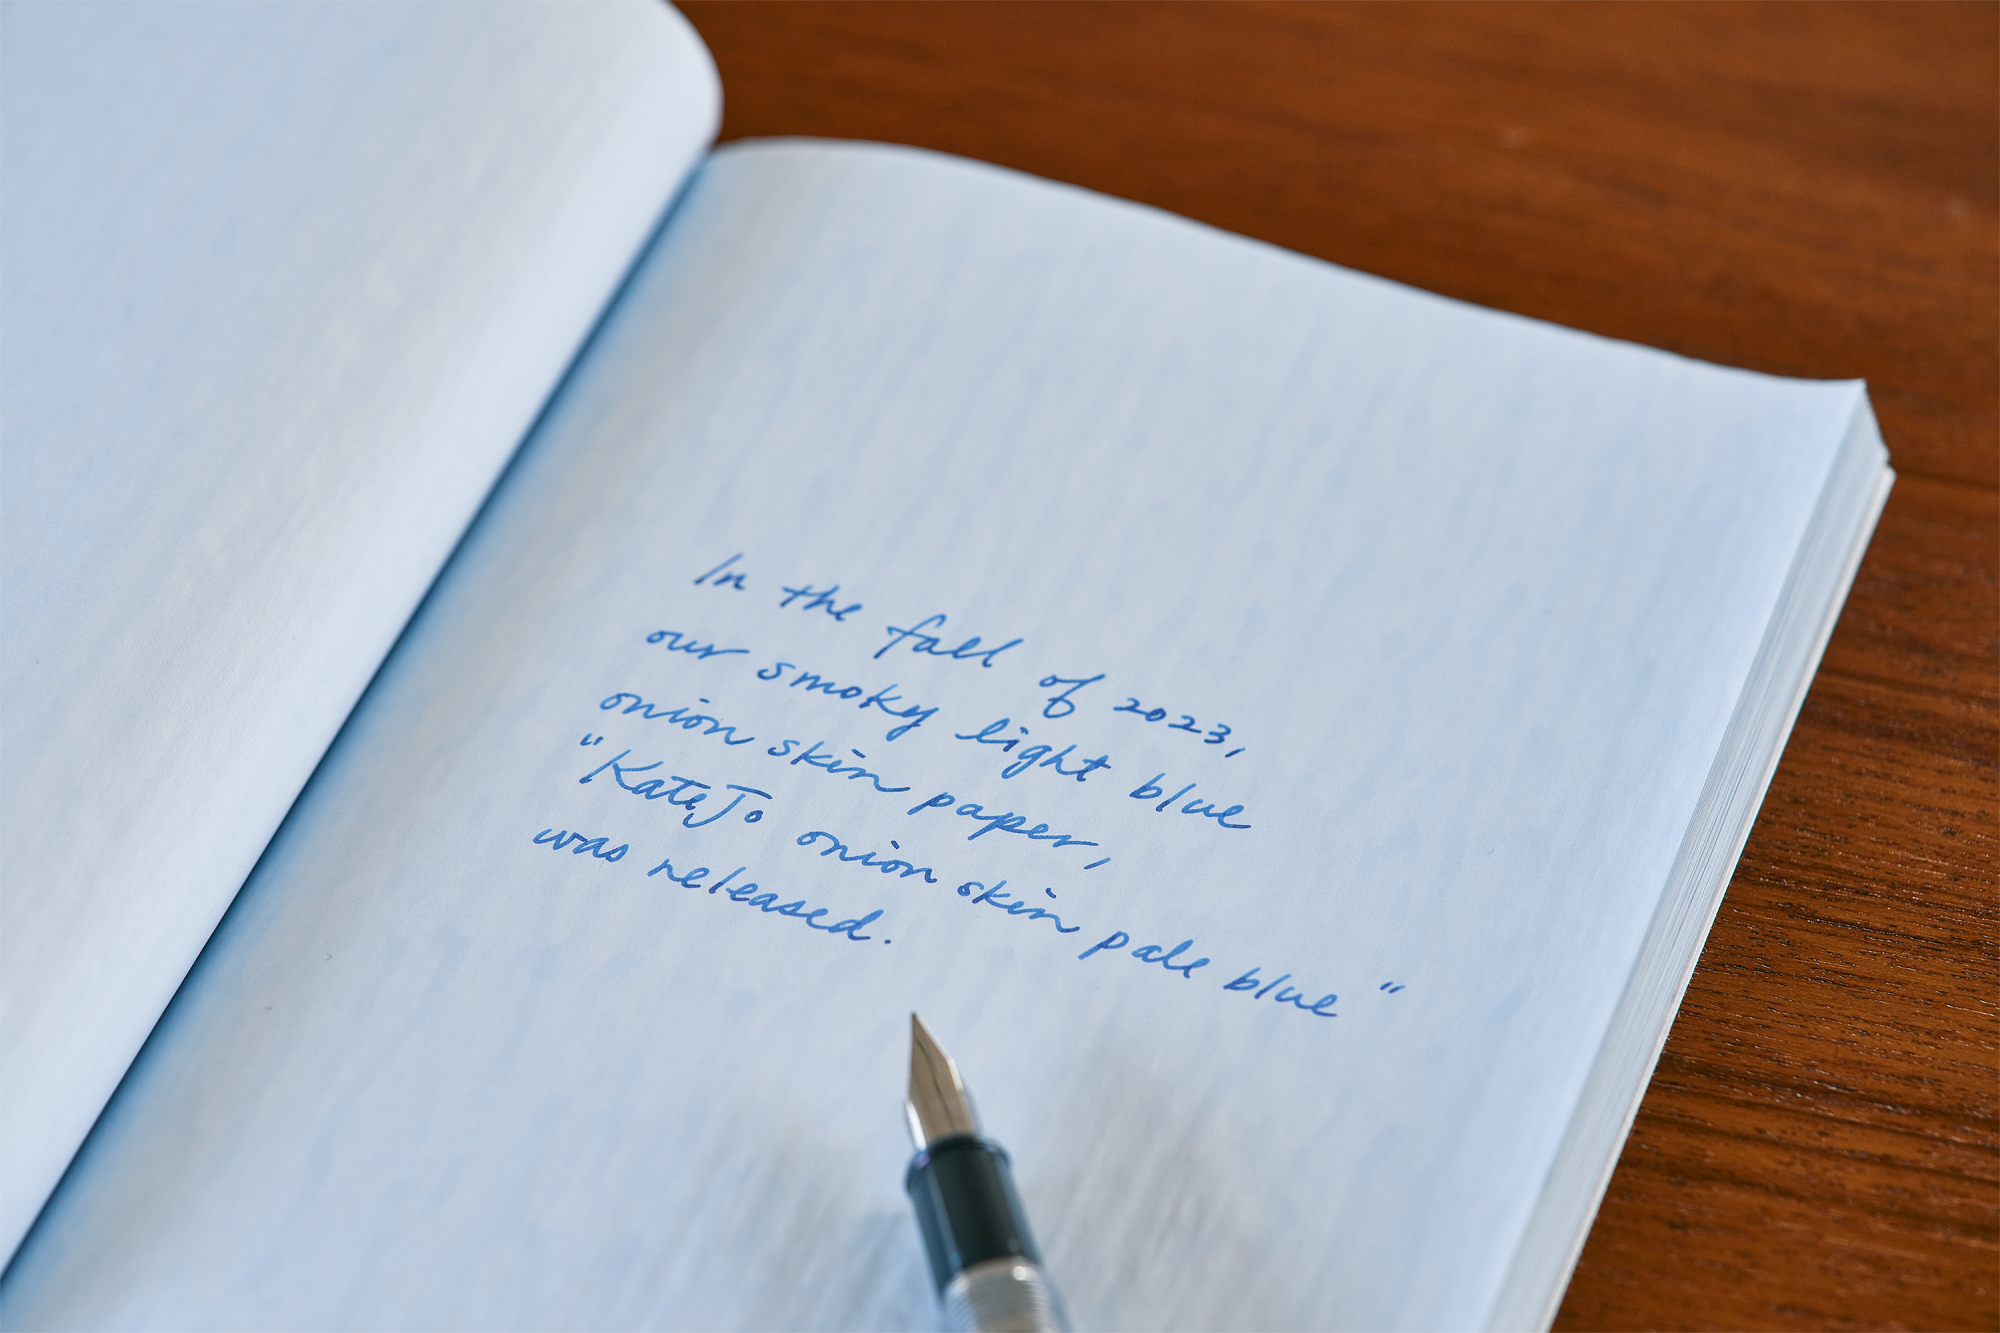 In the fall of 2023,
our smoky light blue
onion skin paper,
"KateJo onion skin pale blue"
was released.